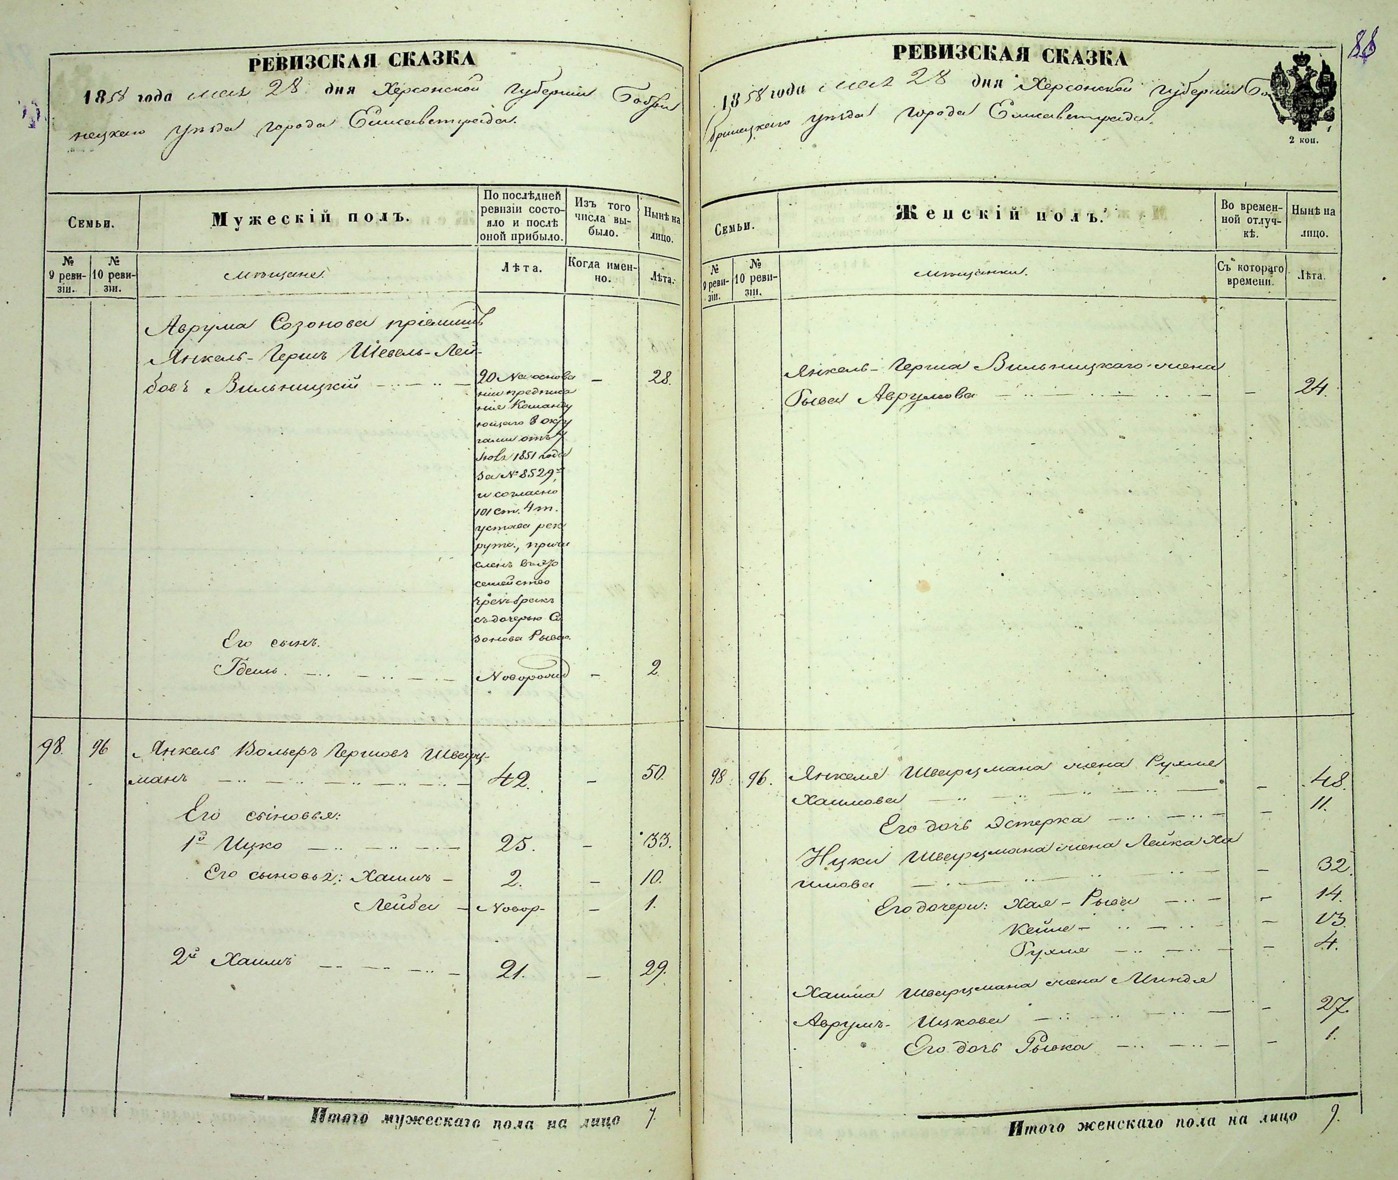 РЕВИЗСКАЯ СКАЗКА
1858 года мая 28 дня Херсонской Губерніи Бобри
нецкаго уѣзда города Елисаветграда.
Семьи.
Мужескій полъ.
По послѣдней
ревизіи состо-
яло и послѣ
оной прибыло.
Изъ того
числа вы-
было.
Нынѣ на
лицо.
№
9 реви-
зіи.
№
10 реви-
зіи.
мѣщане
Лѣта.
Когда имен-
но.
Лѣта.
Аврума Созонова пріемышъ
Янкель-Гершъ Шевель-Лей-
бовъ Вильницкій — 28.
20 На основа
ніи предписа
нія Команду
ющаго 8 окру
гами отъ
1851 года
за № 8529
и согласно
101 ст. 4 т.
устава рек
рут., причи
сленъ въ
семейство
чрезъ бракъ
съ дочерью Со
зонова Рысею
Его сынъ.
Новорожд — 2
98. 96 Янкель Вольфъ Гершовъ Шварц-
манъ 42. — 50.
Его сыновья:
1й Ицко 25. — 33.
Его сыновья: Хаимъ 2. — 10.
Лейба Новор- — 1.
2й Хаимъ 21. — 29.
Итого мужескаго пола на лицо 7.
88
РЕВИЗСКАЯ СКАЗКА
1858 года мая 28 дня Херсонской Губерніи Бо
бринецкаго уѣзда города Елисаветграда.
2 коп.
Семьи.
Женскій полъ.
Во времен-
ной отлуч-
кѣ.
Нынѣ на
лицо.
№
9 реви-
зіи.
№
10 реви-
зіи.
мѣщанки.
Съ котораго
времени.
Лѣта.
Янкель-Герша Вильницкаго жена
Рыся Аврумова — 24.
98 96. Янкеля Шварцмана жена Рухля
Хаимова — 48.
Его дочь Эстерка — 11.
Ицки Шварцмана жена Лейка Ха
имова — 32.
Его дочери: Хая-Рыся — 14.
Кейля — 13.
Рухля — 4.
Хаима Шварцмана жена Миндля
Аврумъ-Ицкова — 27.
Его дочь Рыська — 1.
Итого женскаго пола на лицо 9.